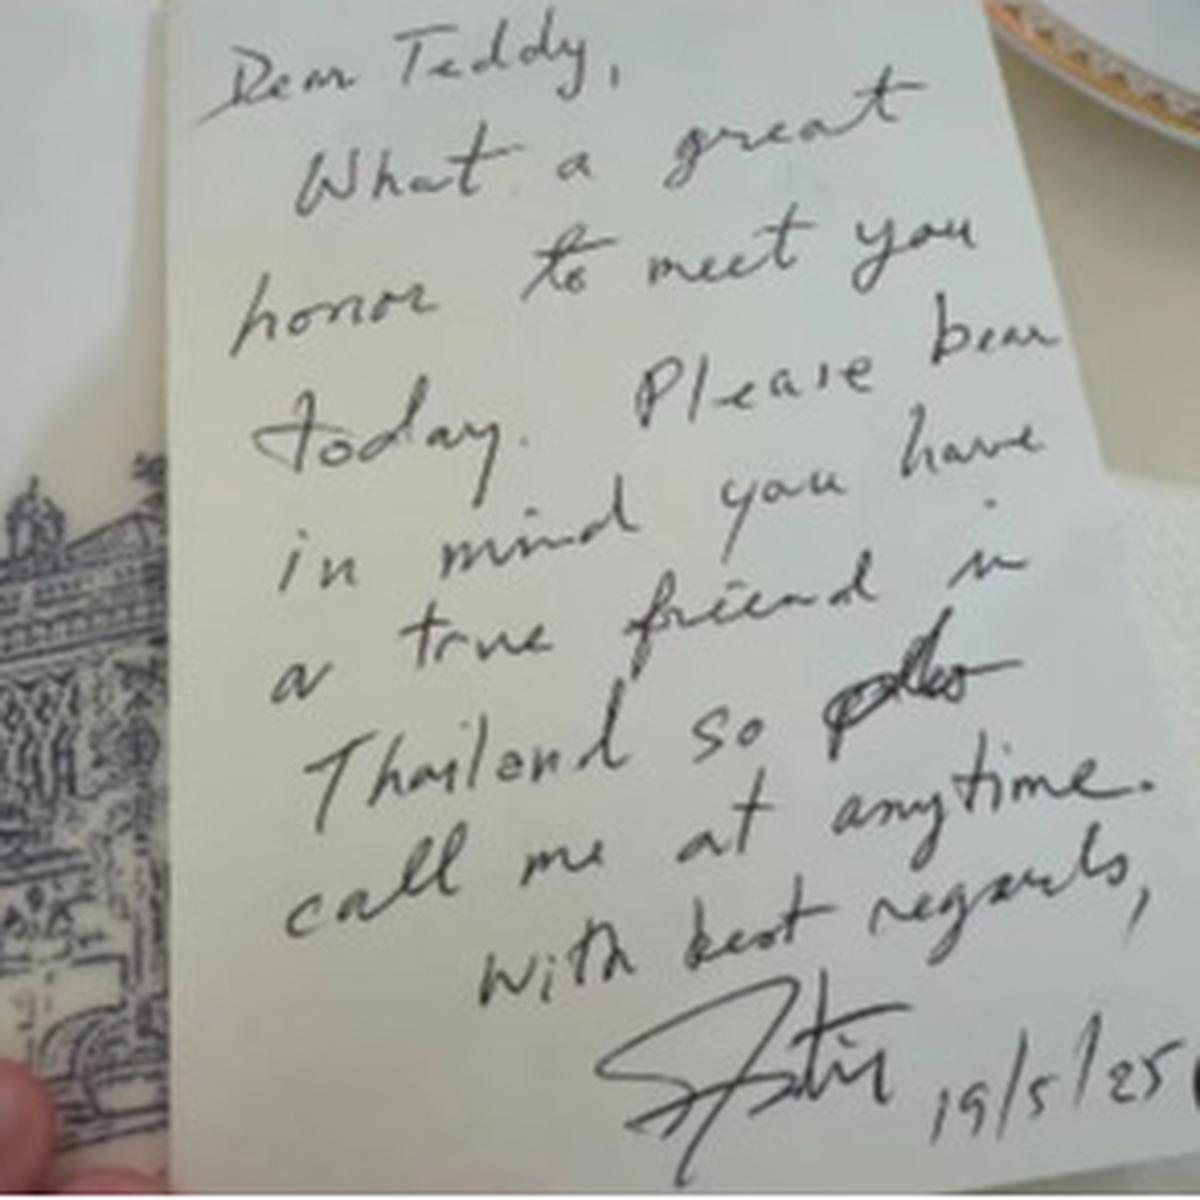 Dear Teddy,
What a great
honor to meet you
today. Please bear
in mind you have
a true friend in
Thailand so
call me at anytime.
With best regards,
19/5/25